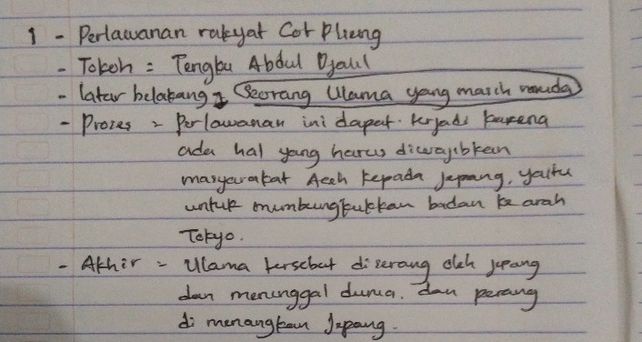 1 - Perlawanan rakyat Cot Plieng
- Tokoh = Tengku Abdul Djalil
- latar belakang = Seorang Ulama yang masih muda
- Proses = Perlawanan ini dapat terjadi karena
ada hal yang harus diwajibkan
masyarakat Aceh kepada Jepang, yaitu
untuk membungkukkan badan ke arah
Tokyo.
- Akhir = Ulama tersebut diserang oleh jepang
dan meninggal dunia. dan perang
di menangkan Jepang.